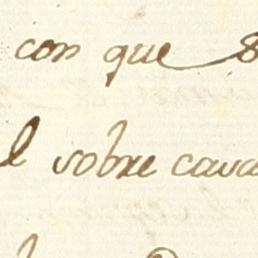 con que
sobre cava